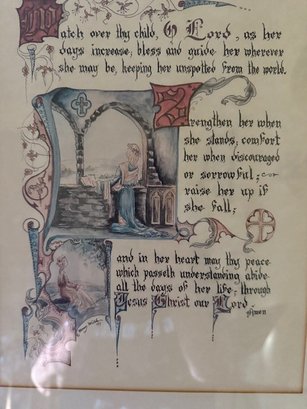 Watch over thy child, O Lord, as her
days increase; bless and guide her wherever
she may be, keeping her unspotted from the world.
Strengthen her when
she stands; comfort
her when discouraged
or sorrowful;
raise her up if
she fall;
and in her heart may thy peace
which passeth understanding abide
all the days of her life; through
Jesus Christ our Lord.
Amen